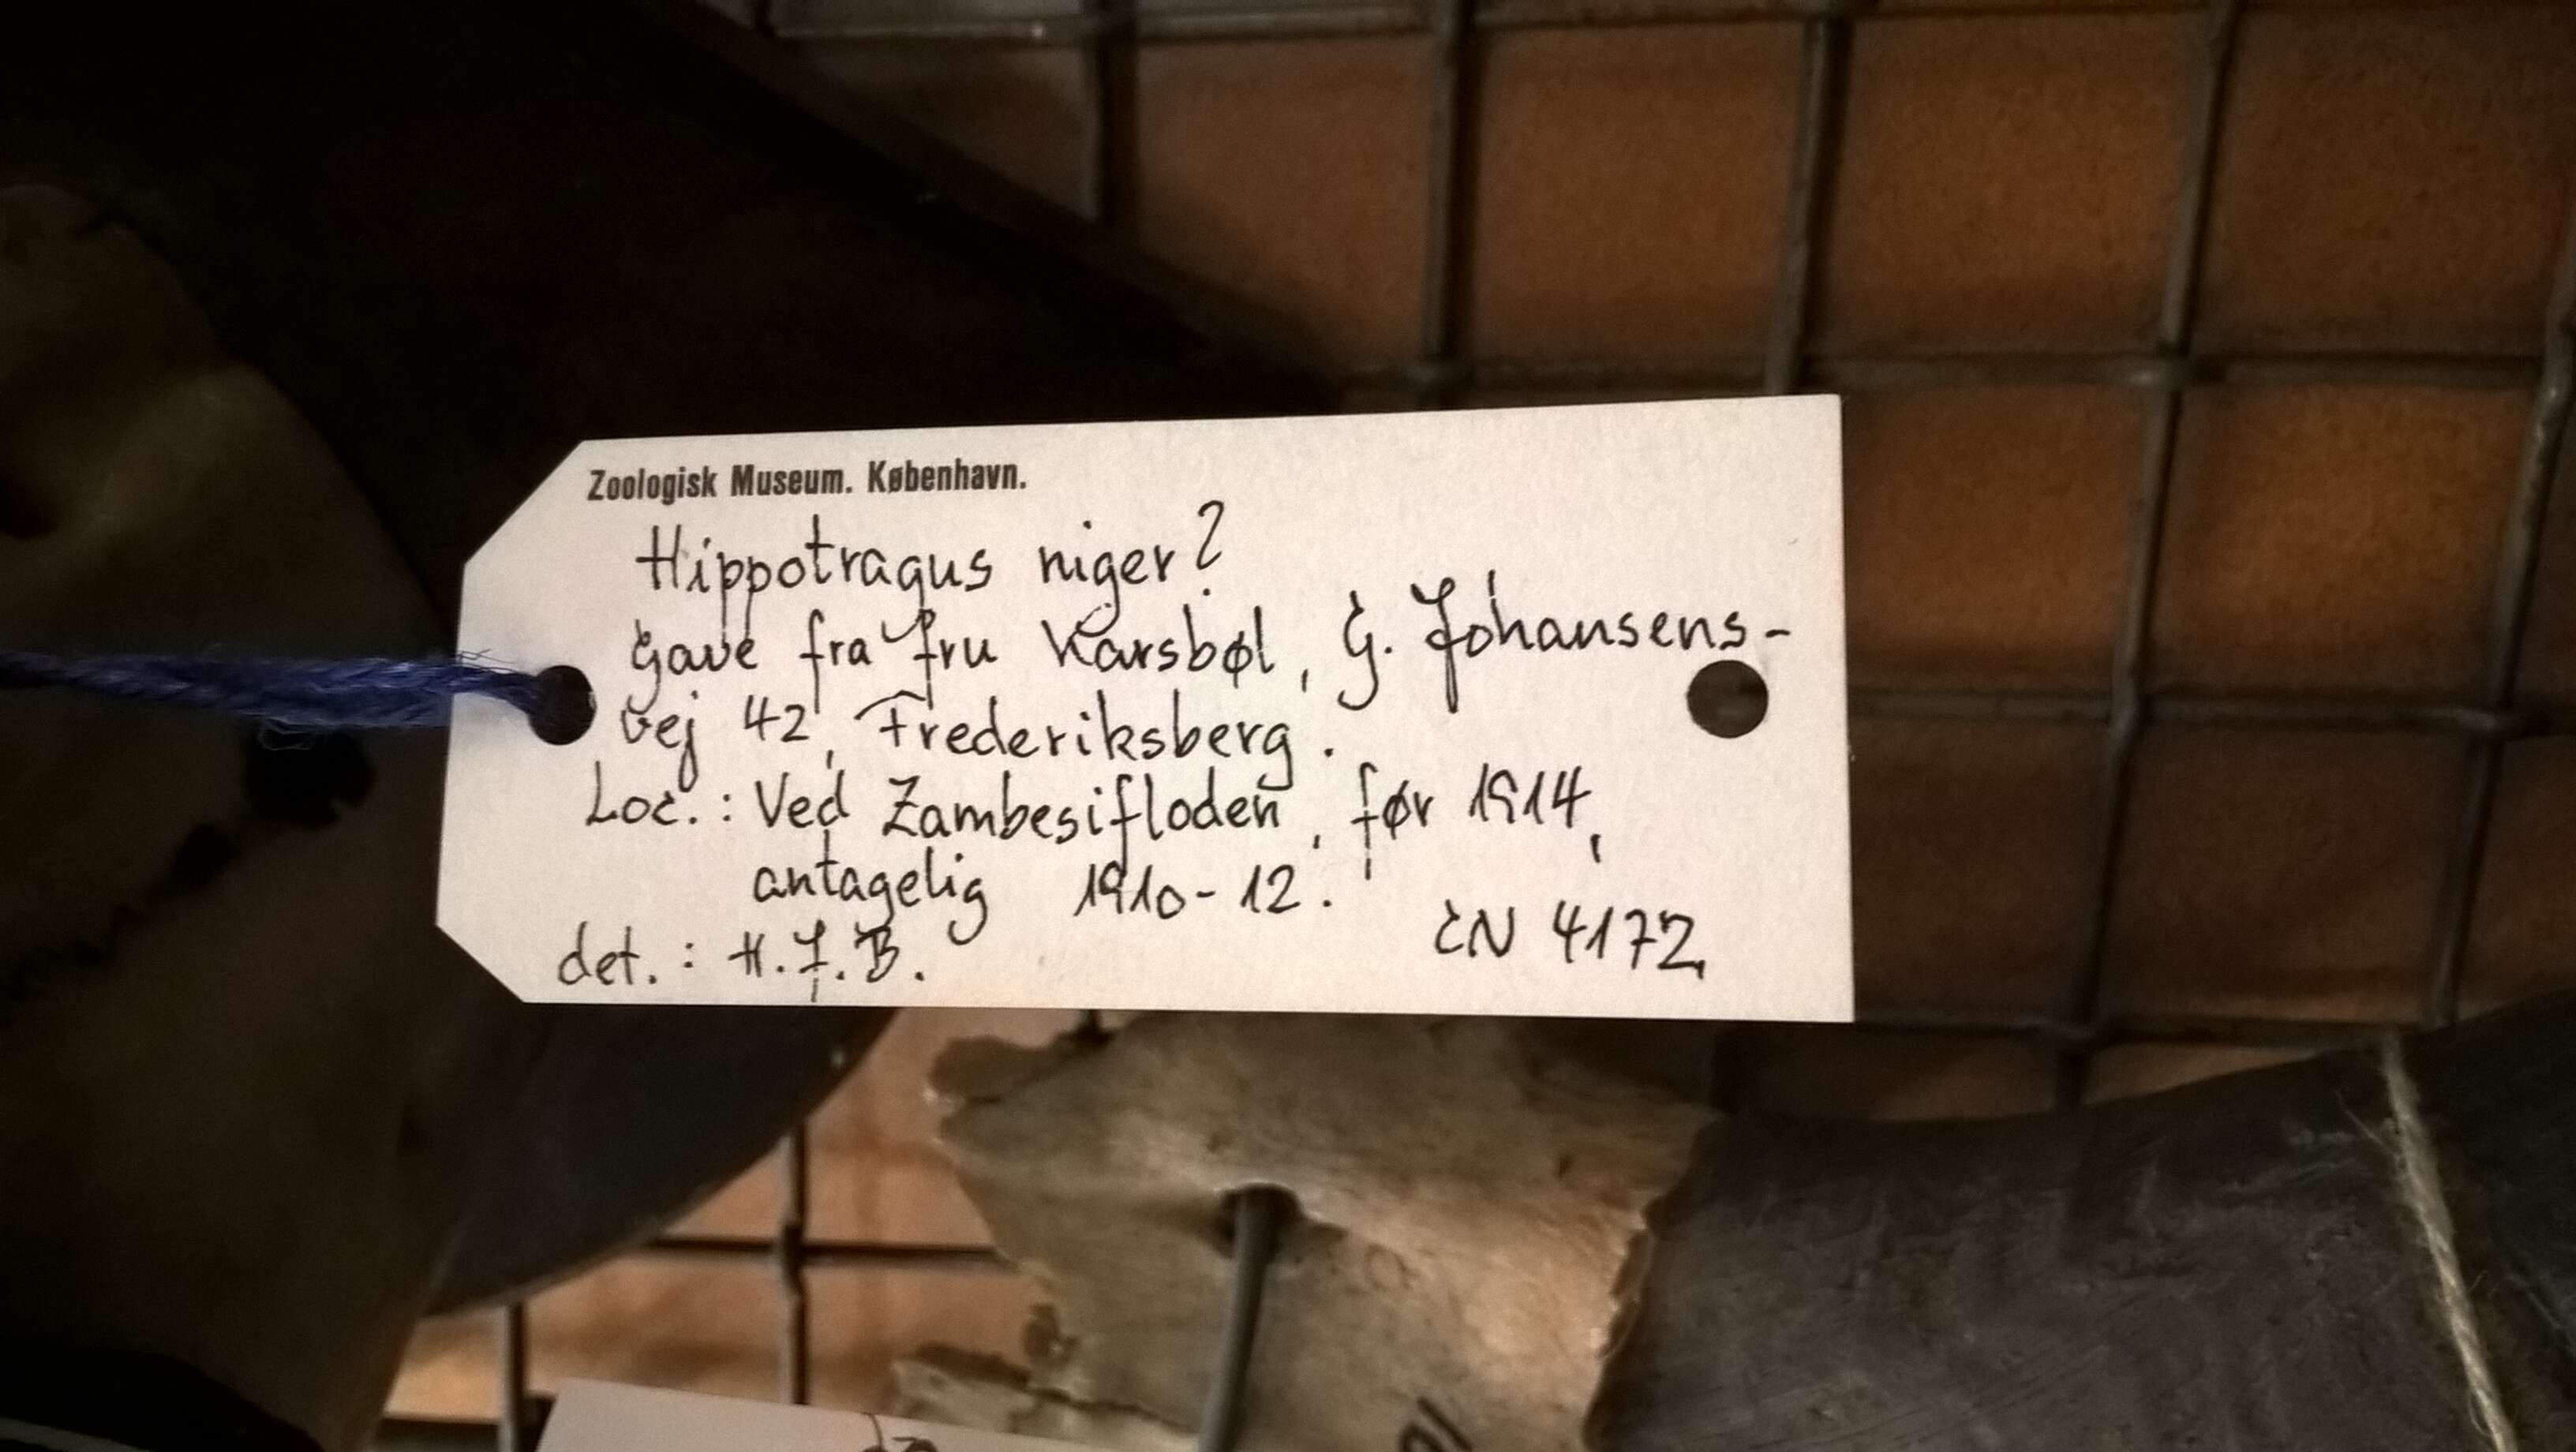 Zoologisk Museum. København.
Hippotragus niger?
Gave fra fru Karsbøl, G. Johansens-
vej 42, Frederiksberg.
Loc.: Ved Zambesifloden, før 1914,
antagelig 1910-12.
det.: H.J.B. CN 4172